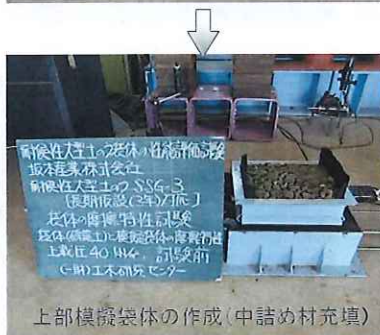 耐候性大型土のう袋体の性能評価試験
坂本産業株式会社
耐候性大型土のう SSG-3
[長期仮設(3年)対応]
袋体の摩擦特性試験
袋体(砕石土)と模擬袋体の摩擦特性
上載圧40 試験前
(一財)土木研究センター
上部模擬袋体の作成(中詰め材充填)